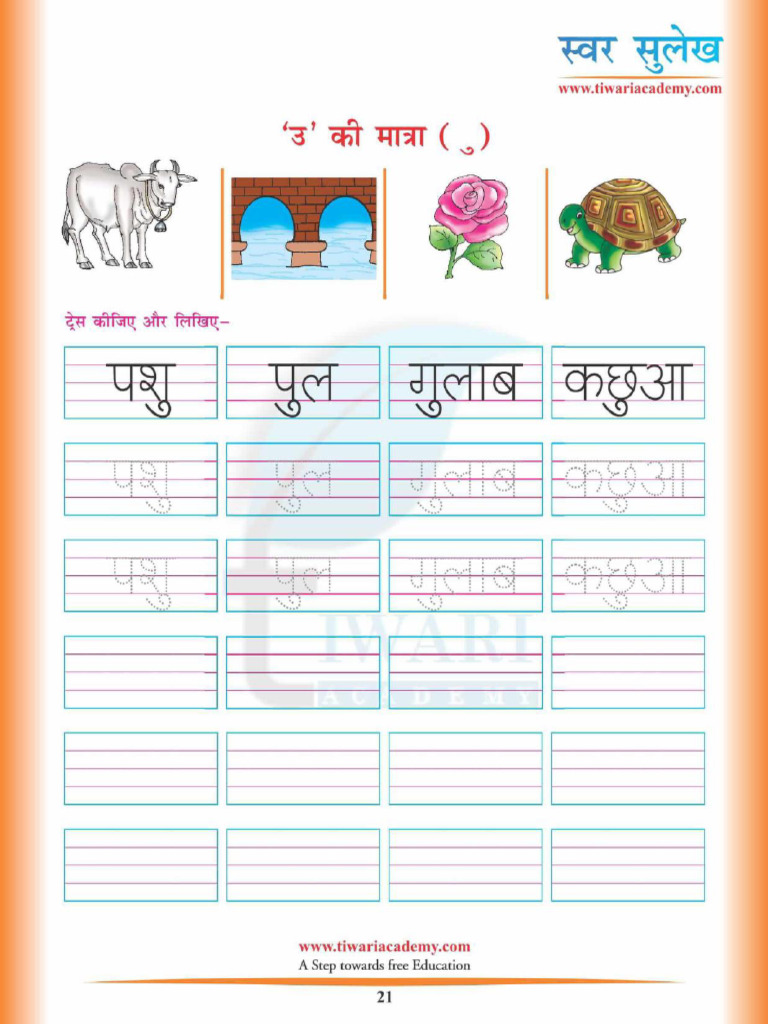 स्वर सुलेख
www.tiwariacademy.com
‘उ’ की मात्रा ( ु )
ट्रेस कीजिए और लिखिए–
पशु पुल गुलाब कछुआ
पशु पुल गुलाब कछुआ
पशु पुल गुलाब कछुआ
TIWARI
ACADEMY
www.tiwariacademy.com
A Step towards free Education
21